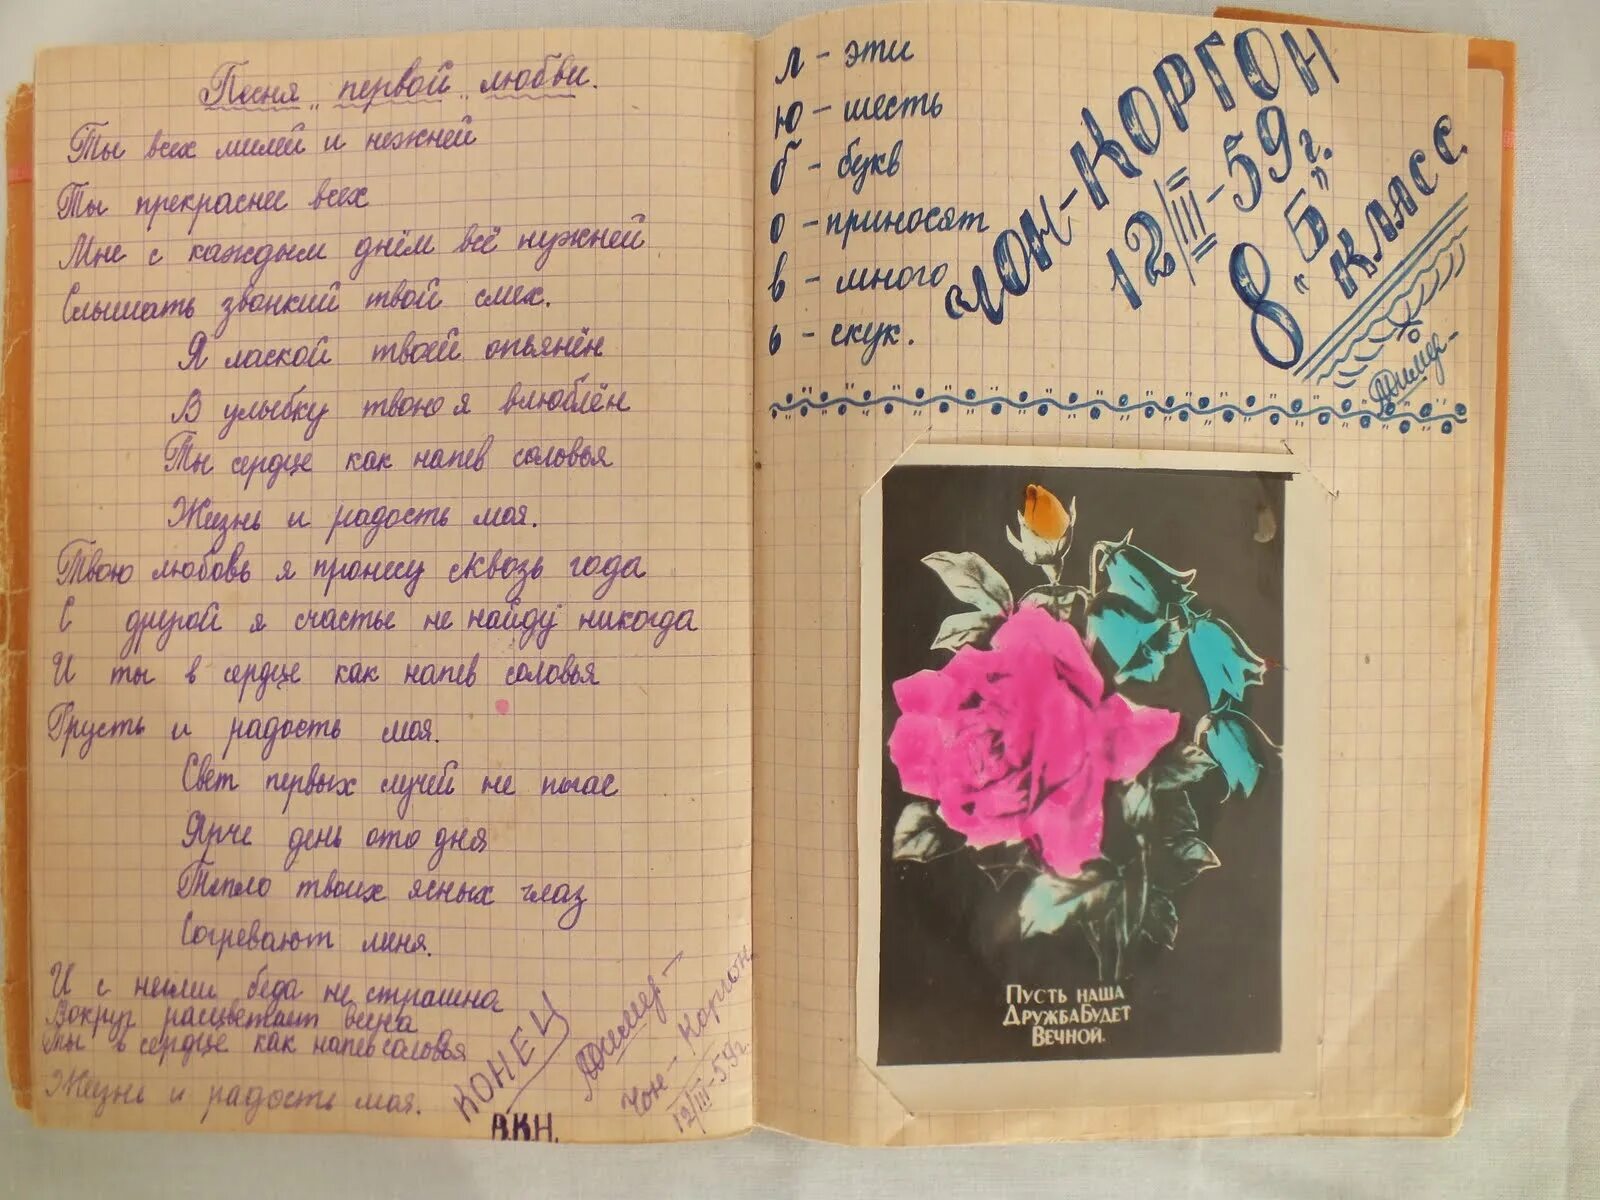 Песня „первой„ любви.
Ты всех милей и нежней
Ты прекраснее всех
Мне с каждым днём всё нужней
Слышать звонкий твой смех.
Я лаской твоей опьянён
В улыбку твою я влюблён
Ты сердце как напев соловья
Жизнь и радость моя.
Твою любовь я пронесу сквозь года
С другой я счастье не найду никогда
И ты в сердце как напев соловья
Грусть и радость моя.
Свет первых лучей не погас
Ярче день ото дня
Тепло твоих ясных глаз
Согревают меня.
И с ними беда не страшна
Вокруг расцветает весна
Ты в сердце как напев соловья
Жизнь и радость моя.
КОНЕЦ
В.К.Н.
Чон-Коргон.
12/III-59г.
л - эти
ю - шесть
б - букв
о - приносят
в - много
ь - скук.
Чон-Коргон
12/III-59г.
8 „Б" класс.
Пусть наша
Дружба Будет
Вечной.